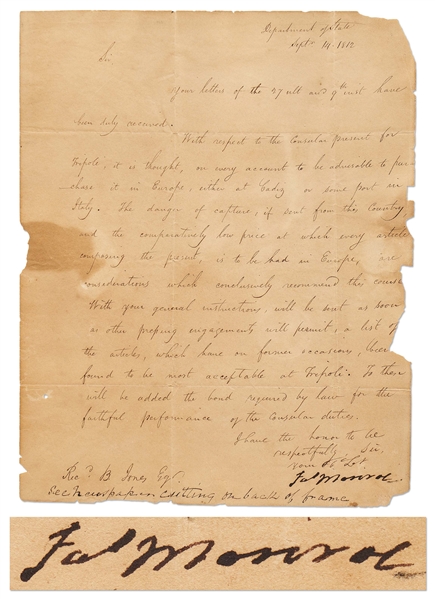 Department of State
Sept. 14. 1812
Sir
Your letters of the 27 ult and 9th inst have
been duly received.
With respect to the Consular present for
Tripoli, it is thought, on every account to be adviseable to pur-
chase it in Europe, either at Cadiz or some port in
Italy. The danger of capture, if sent from this Country,
and the comparatively low price at which every article
composing the present, is to be had in Europe, are
considerations which conclusively recommend this course
With your general instructions, will be sent as soon
as other pressing engagements will permit, a list of
the articles, which have on former occasions, been
found to be most acceptable at Tripoli. To these
will be added the bond required by law for the
faithful performance of the Consular duties.
I have the honor to be
respectfully, Sir,
your
Jas Monroe
B Jones Esqr.
see newspaper cutting on back of frame
Jas Monroe